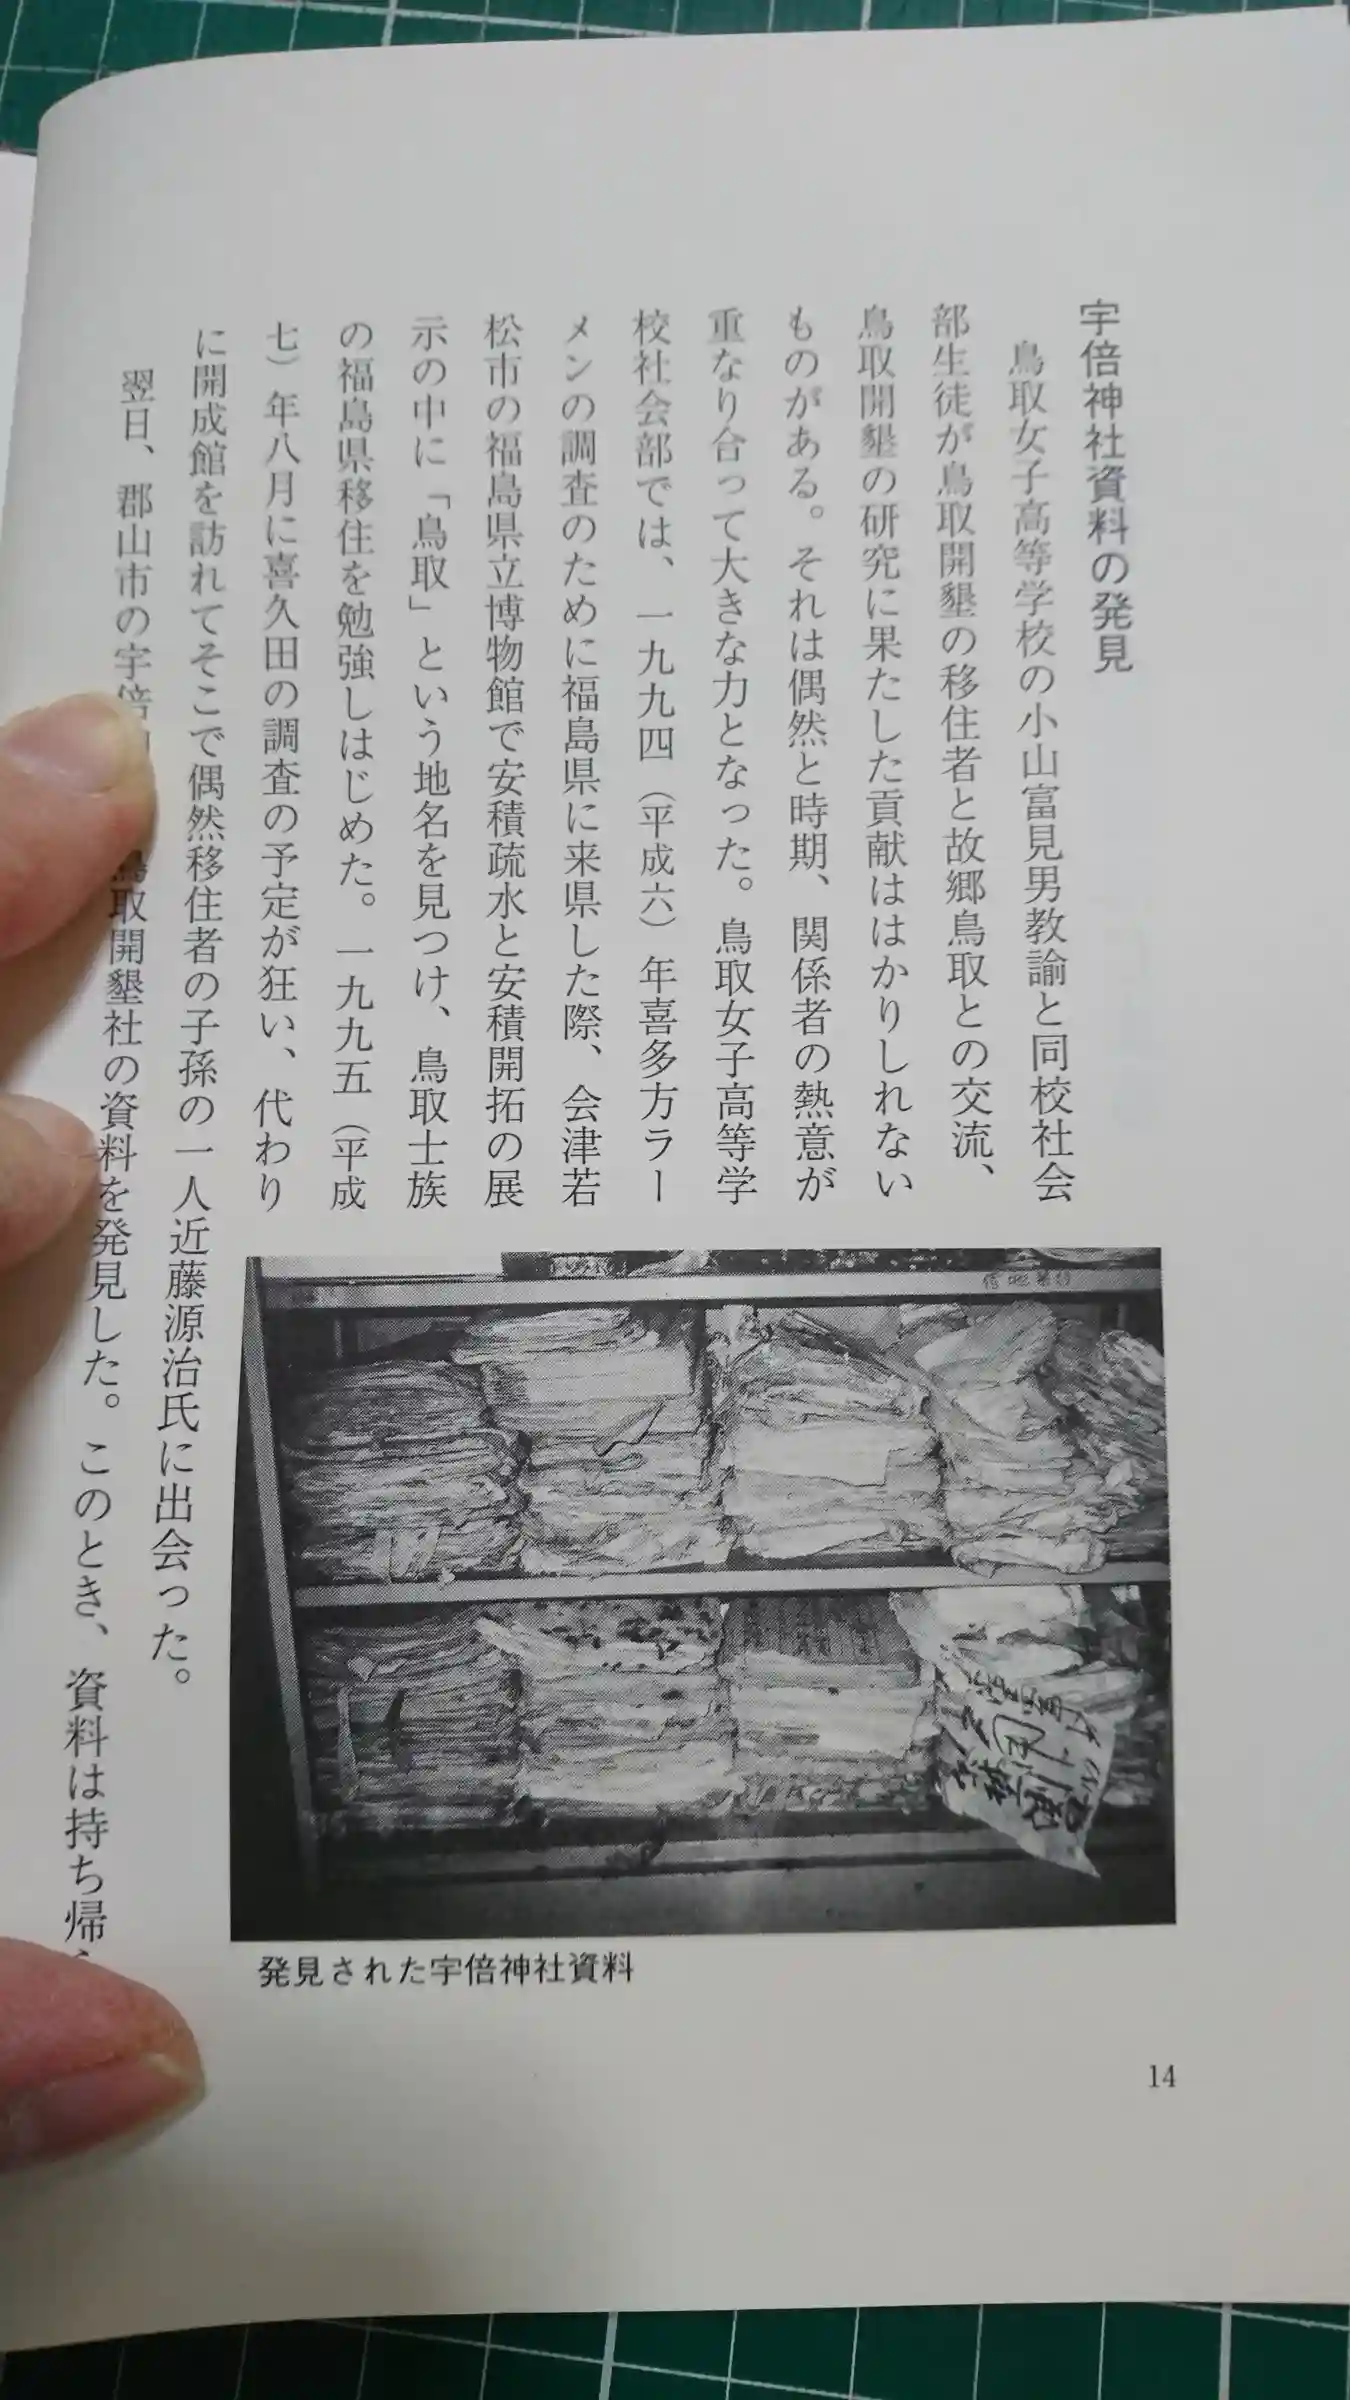 宇倍神社資料の発見
鳥取女子高等学校の小山富見男教諭と同校社会
部生徒が鳥取開墾の移住者と故郷鳥取との交流、
鳥取開墾の研究に果たした貢献ははかりしれない
ものがある。それは偶然と時期、関係者の熱意が
重なり合って大きな力となった。鳥取女子高等学
校社会部では、一九九四（平成六）年喜多方ラー
メンの調査のために福島県に来県した際、会津若
松市の福島県立博物館で安積疏水と安積開拓の展
示の中に「鳥取」という地名を見つけ、鳥取士族
の福島県移住を勉強しはじめた。一九九五（平成
七）年八月に喜久田の調査の予定が狂い、代わり
に開成館を訪れてそこで偶然移住者の子孫の一人近藤源治氏に出会った。
翌日、郡山市の宇倍鳥取開墾社の資料を発見した。このとき、資料は持ち帰
発見された宇倍神社資料
14